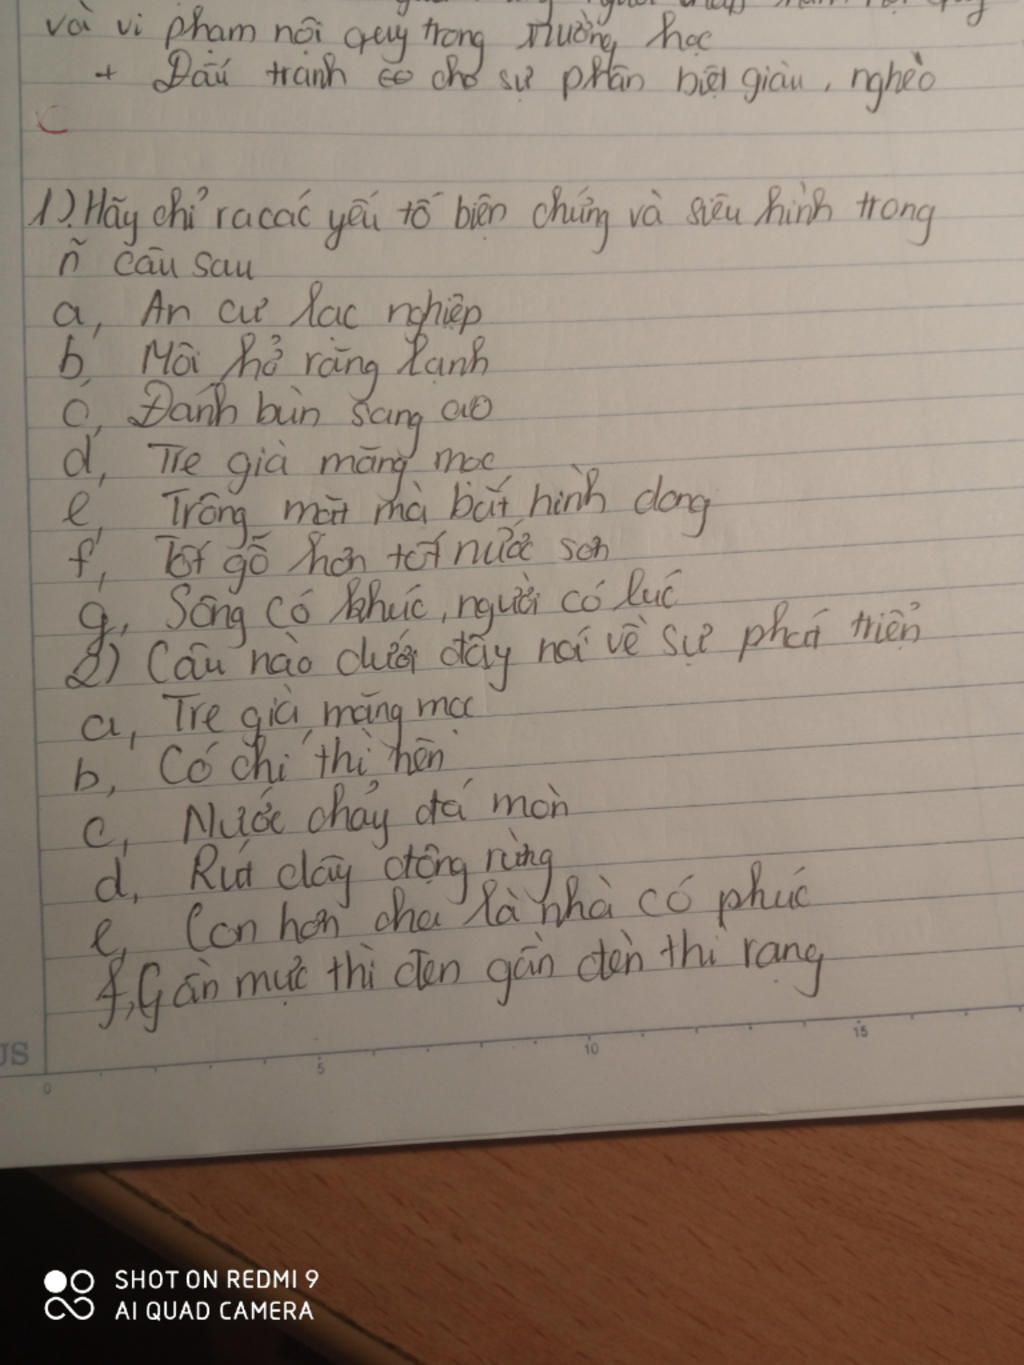 và vi phạm nội quy trong trường học
+ Đấu tranh cho sự phân biệt giàu, nghèo
1) Hãy chỉ ra các yếu tố biện chứng và siêu hình trong
ñ câu sau
a, An cư lạc nghiệp
b, Môi hở răng lạnh
c, Đánh bùn sang ao
d, Tre già măng mọc
e, Trông mặt mà bắt hình dong
f, Tốt gỗ hơn tốt nước sơn
g, Sông có khúc, người có lúc
2) Câu nào dưới đây nói về sự phát triển
a, Tre già măng mọc
b, Có chí thì nên
c, Nước chảy đá mòn
d, Rút dây động rừng
e, Con hơn cha là nhà có phúc
f, Gần mực thì đen gần đèn thì rạng
US
0 5 10 15
SHOT ON REDMI 9
AI QUAD CAMERA